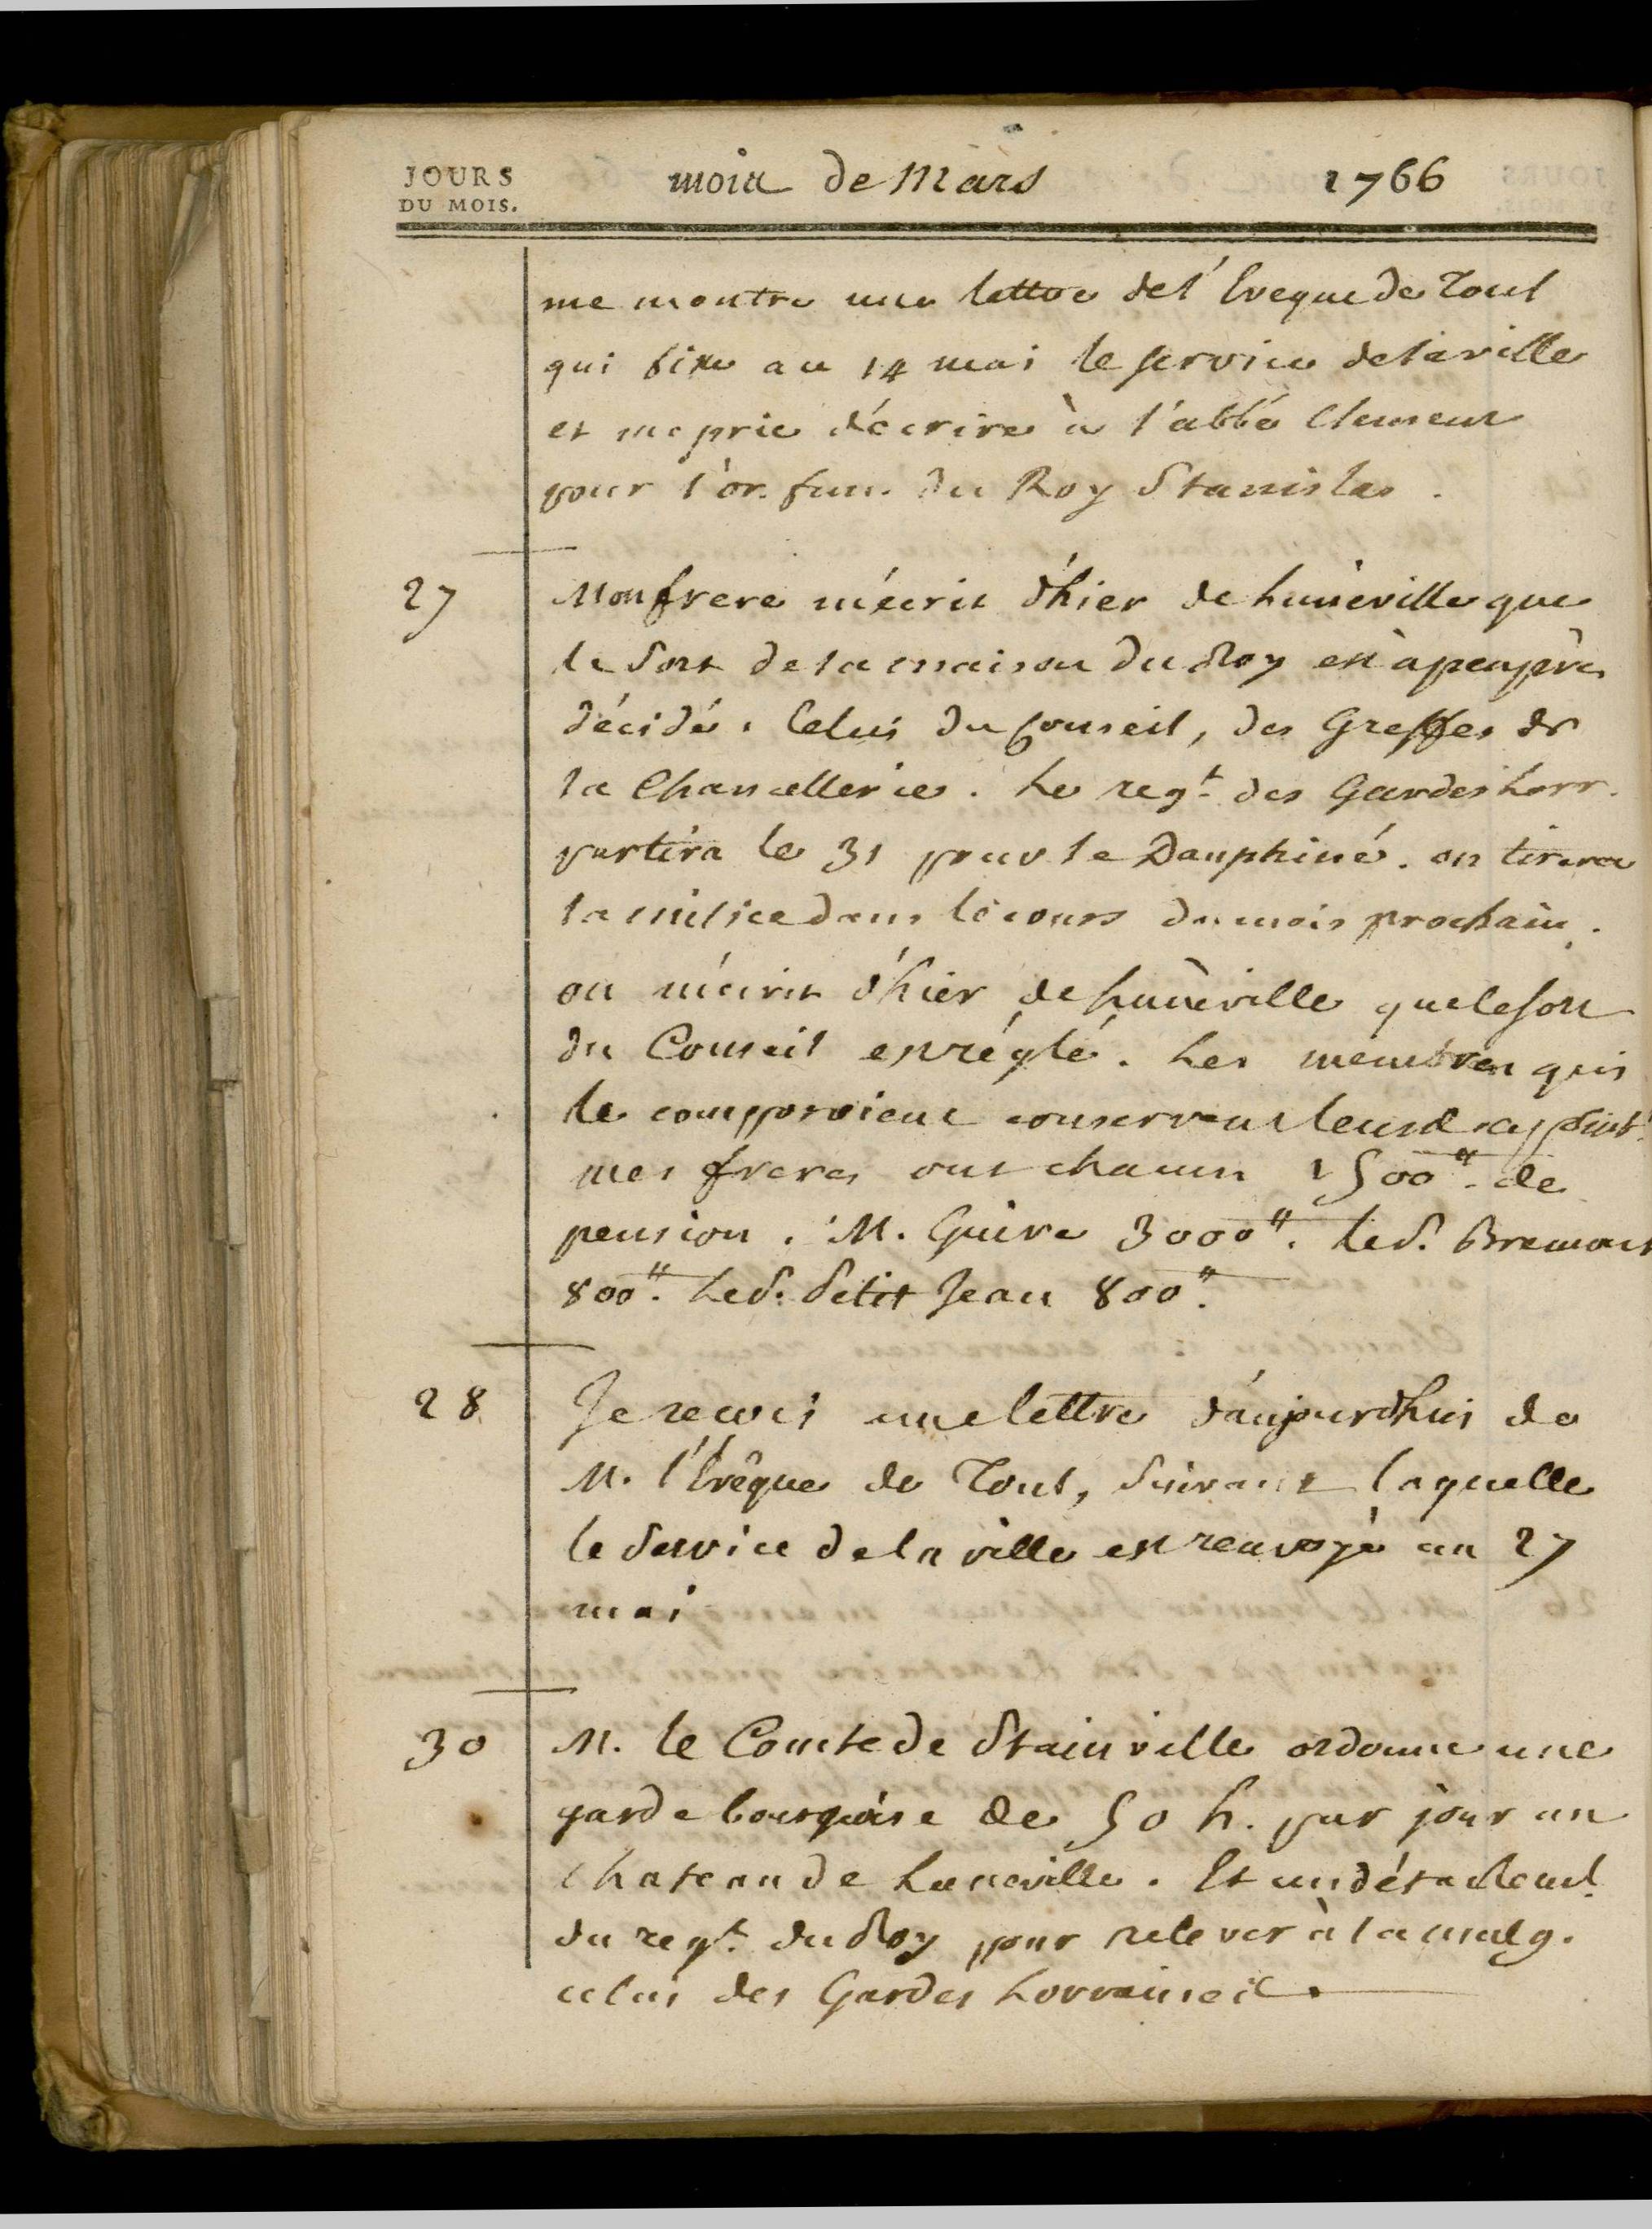 JOURS
DU MOIS.
mois de Mars 1766
me montre une lettre de l'Eveque de Toul
qui fixe au 14 mai le service de la ville
et me prie d'écrire à l'abbé Clement
pour l'or. fun. du Roy Stanislas.
27 Mon frere m'écrit d'hier de Lunéville que
le Sort de la maison du Roy est à peu près
décidé. Celui du Conseil, des Greffes &
la Chancellerie. Le regt. des Gardes Lorr.
partira le 31 pour le Dauphiné. on tirera
la milice dans le cours du mois prochain.
on m'écrit d'hier de Lunéville que le sort
du Conseil est réglé. Les membres qui
le composoient conservent leurs appoint.
mes freres ont chacun 1500#. de
pension. M. Guire 3000#. Le S. Bremont
800#. Le S. Petit Jean 800#.
28 Je recois une lettre d'aujourdhui de
M. l'Evêque de Toul, suivant laquelle
le Service de la ville est renvoyé au 27
mai
30 M. le Comte de Stainville ordonne une
garde bourgeoise de 50 h. par jour au
chateau de Luneville. Et un détachemt.
du regt. du Roy pour relever à la malg.
celui des Gardes Lorraines.